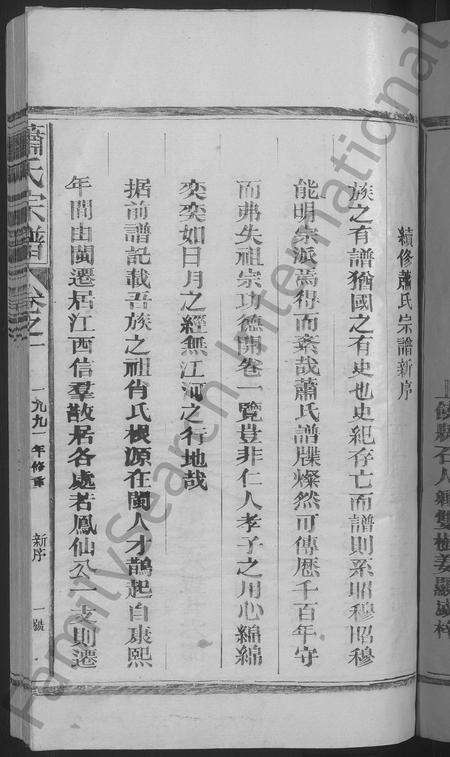 續修蕭氏宗譜新序
族之有譜猶國之有史也史紀存亡而譜則系昭穆昭穆
能明宗派焉得而紊哉蕭氏譜牒燦然可傳歷千百年守
而弗失祖宗功德開卷一覽豈非仁人孝子之用心綿綿
奕奕如日月之經無江河之行地哉
据前譜記載吾族之祖肖氏根源在閩人才鵲起自康熙
年間由閩遷居江西信羣散居各處若鳳仙公一支則遷
蕭氏宗譜
卷之一
一九九一年修重
新序
一號
FamilySearch International